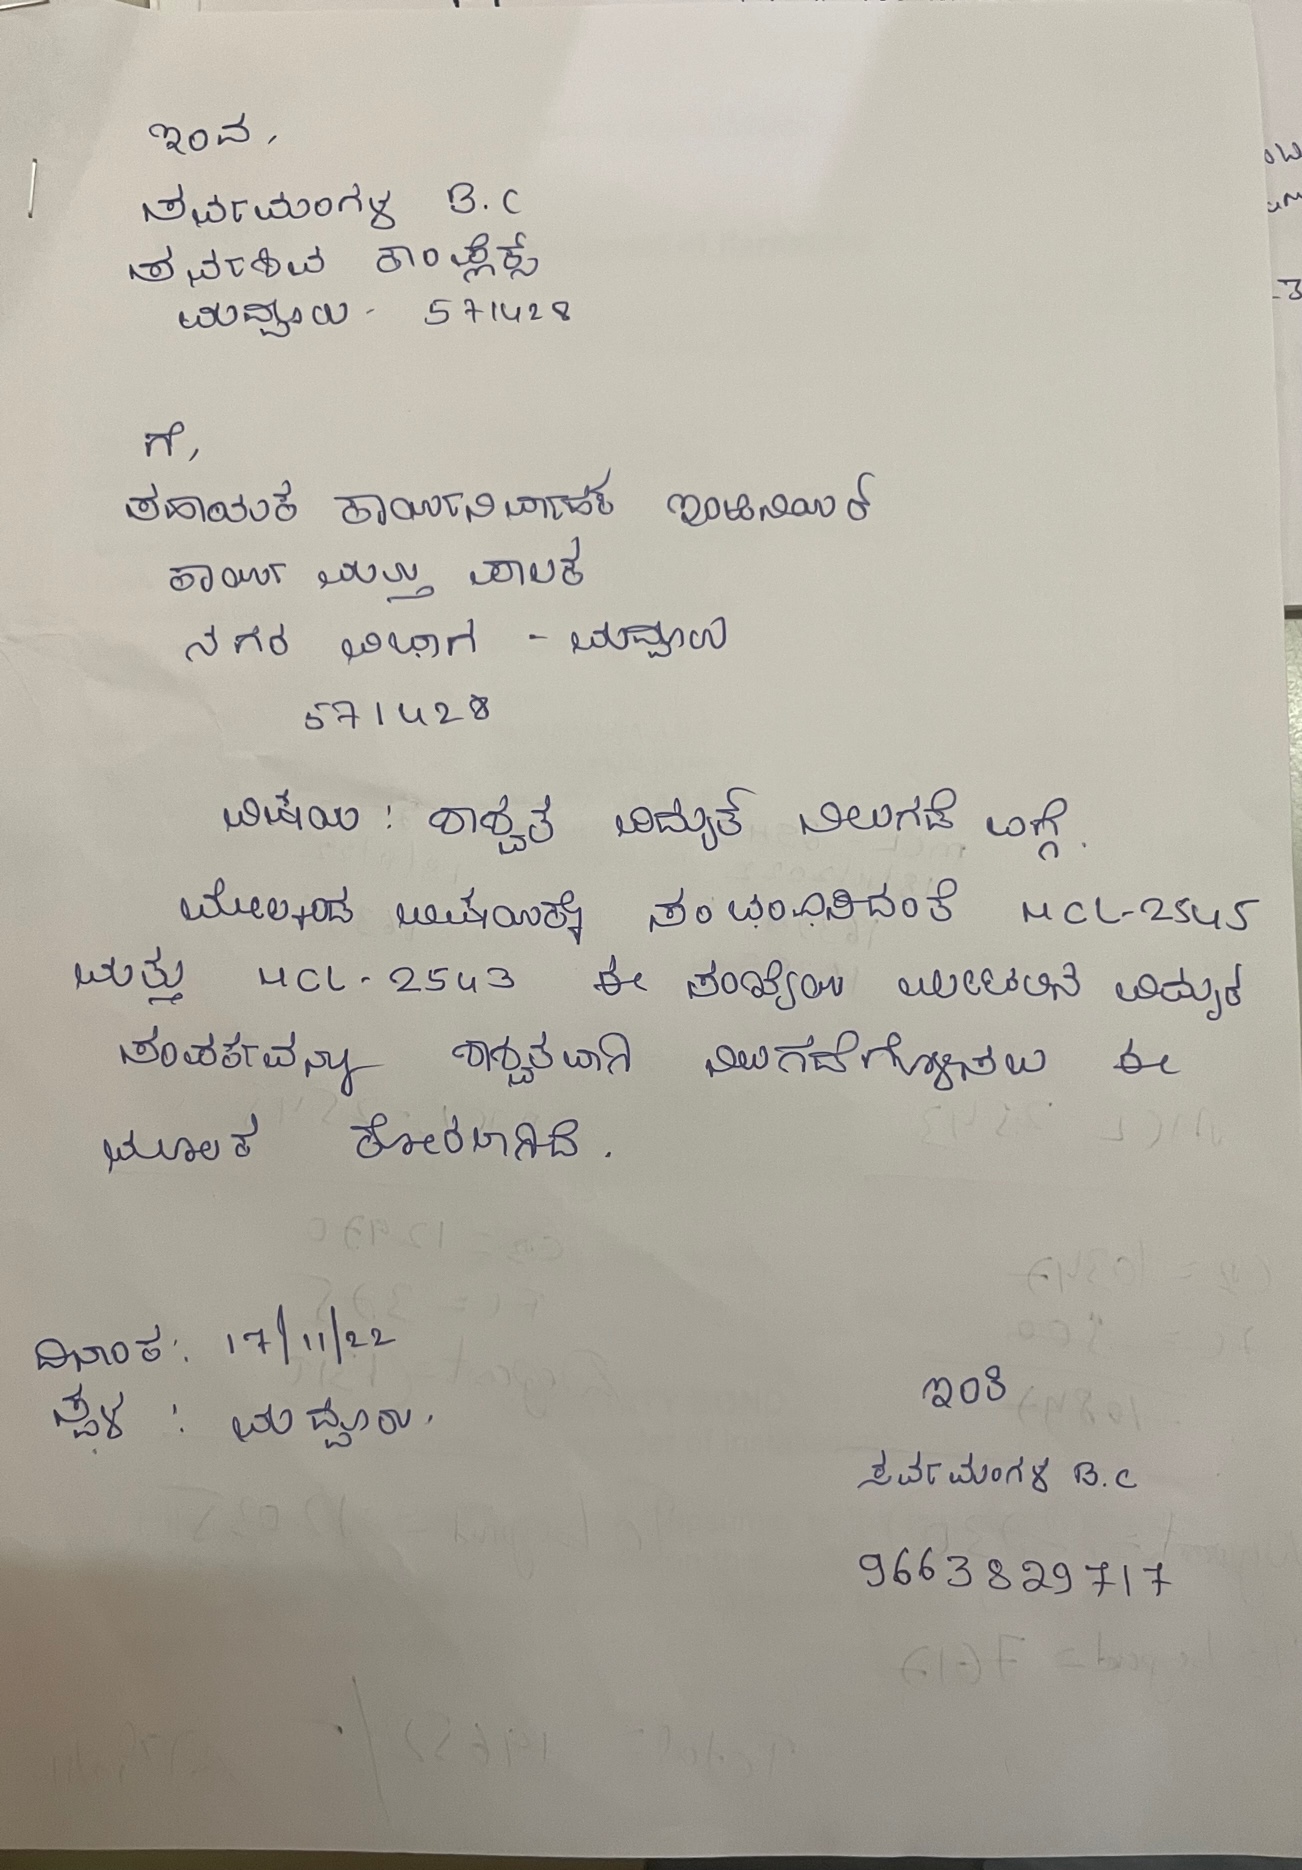 ಇಂದ,
ಸರ್ವಮಂಗಳ B.C
ಸರ್ವಶಿವ ಕಾಂಪ್ಲೆಕ್ಸ್
ಮದ್ದೂರು - 571428
ಗೆ,
ಸಹಾಯಕ ಕಾರ್ಯನಿರ್ವಾಹಕ ಇಂಜಿನಿಯರ್
ಕಾರ್ಯ ಮತ್ತು ಪಾಲಕ
ನಗರ ವಿಭಾಗ - ಮದ್ದೂರು
571428
ವಿಷಯ : ಶಾಶ್ವತ ವಿದ್ಯುತ್ ನಿಲುಗಡೆ ಬಗ್ಗೆ.
ಮೇಲ್ಕಂಡ ವಿಷಯಕ್ಕೆ ಸಂಬಂಧಿಸಿದಂತೆ MCL-2545
ಮತ್ತು MCL-2543 ಈ ಸಂಖ್ಯೆಯ ಮೀಟರಿನ ವಿದ್ಯುತ
ಸಂಪರ್ಕವನ್ನು ಶಾಶ್ವತವಾಗಿ ನಿಲುಗಡೆಗೊಳಿಸಲು ಈ
ಮೂಲಕ ಕೋರಲಾಗಿದೆ.
ದಿನಾಂಕ: 17/11/22
ಸ್ಥಳ : ಮದ್ದೂರು.
ಇಂತಿ
ಸರ್ವಮಂಗಳ B.C
9663829717